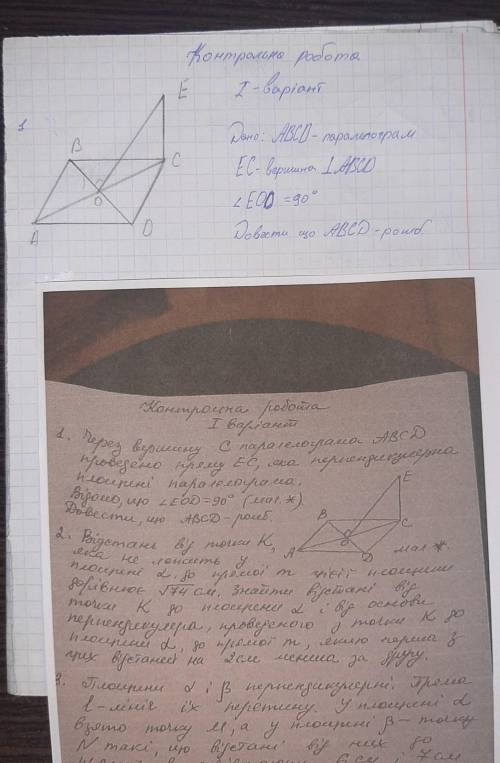 Контрольна робота
I - варіант
E
1
Дано: ABCD - паралелограм
B
C
EC - вершина ⊥ ABCD
∠EOD = 90°
O
A
D
Довести що ABCD - ромб.
Контрольна робота
I варіант
1. Через вершину C паралелограма ABCD
проведено пряму EC, яка перпендикулярна
площині паралелограма.
Відомо, що ∠EOD = 90° (мал.*).
Довести, що ABCD - ромб.
E
B
C
O
A
D
мал *.
2. Відстань від точки K,
яка не лежить у
площині α, до прямої m цієї площини
дорівнює √74 см. Знайти відстані від
точки K до площини α і від основи
перпендикуляра, проведеного з точки K до
площини α, до прямої m, якщо перша з
цих відстаней на 2 см менша за другу.
3. Площини α і β перпендикулярні. Пряма
l - лінія їх перетину. У площині α
взято точку M, а у площині β - точку
N такі, що відстані від них до
6 см і 7 см